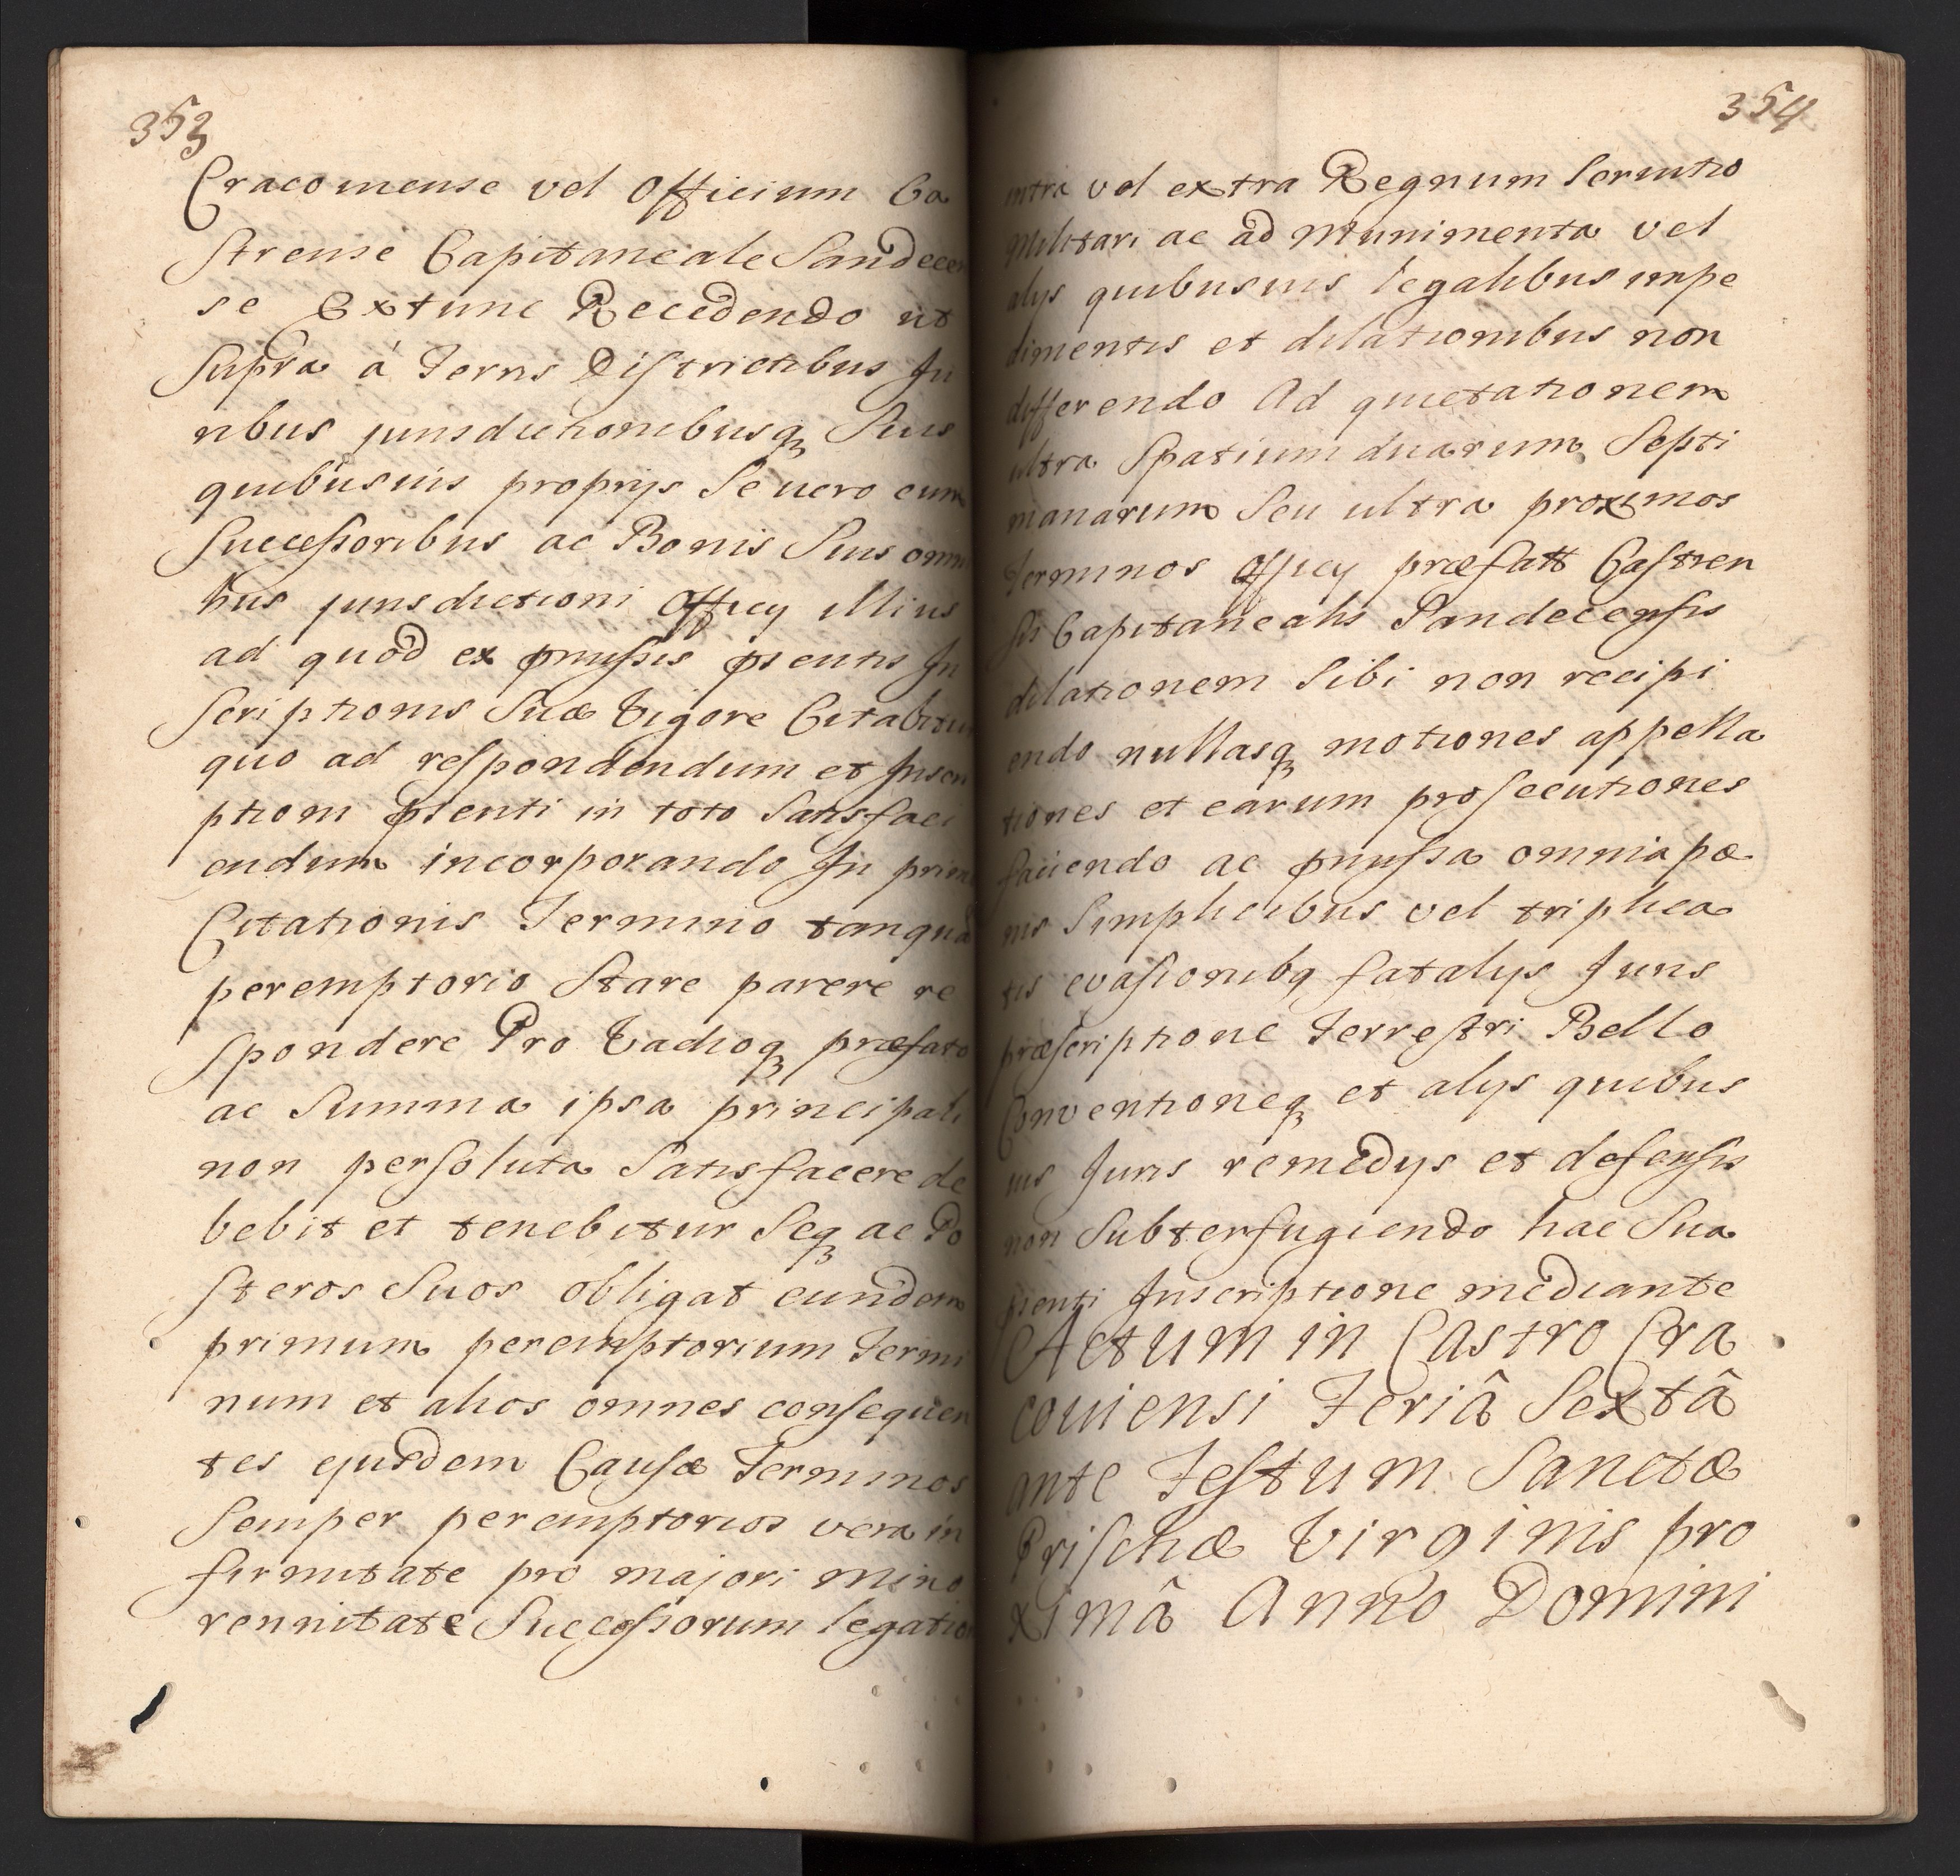 353
Cracoviense vel Officium Ca
strense Capitaneale Sandecen
se Extunc Recedendo ut
Supra á Terris Districtibus Ju
ribus jurisdictionibusq Suis
quibusuis proprijs Se uero cum
Successoribus ac Bonis Suis omni
bus jurisdictioni Officij illius
ad quod ex pmissis psentis In
scriptionis Suæ Vigore Citabitur
quo ad respondendum et Inscri
ptioni psenti in toto Satisfaci
endum incorporando In primo
Citationis Termino tanquã
peremptorio Stare parere re
spondere Pro Vadioq præfato
ac Summa ipsa principali
non persoluta Satisfacere de
bebit et tenebitur Seq ac Po
steros Suos obligat eundem
primum peremptorium Termi
num et alios omnes consequen
tes ejusdem Causæ Terminos
Semper peremptorios vera in
firmitate pro majori mino
rennitate Successorum legation
354
intra vel extra Regnum Seruitio
Militari ac ad Munimenta vel
alijs quibusuis legalibus impe
dimentis et dilationibus non
differendo Ad quietationem
ultra Spatium duarum Septi
manarum Seu ultra proximos
Terminos Officij præfatt Castren
sis Capitanealis Sandecensis
dilationem Sibi non recipi
endo nullasq motiones appella
tiones et earum prosecutiones
faciendo ac pmissa omnia pæ
nis Simplicibus vel triplica
tis evasionibq fatalijs Juris
præscriptione Terrestri Bello
Conventioneq et alijs quibus
uis Juris remedijs et defensis
non Subterfugiendo hac Sua
psenti Inscriptione mediante
Actum in Castro Cra
couiensi Feriâ Sextâ
ante Festum Sanctæ
Prischæ Virginis pro
ximâ Anno Domini